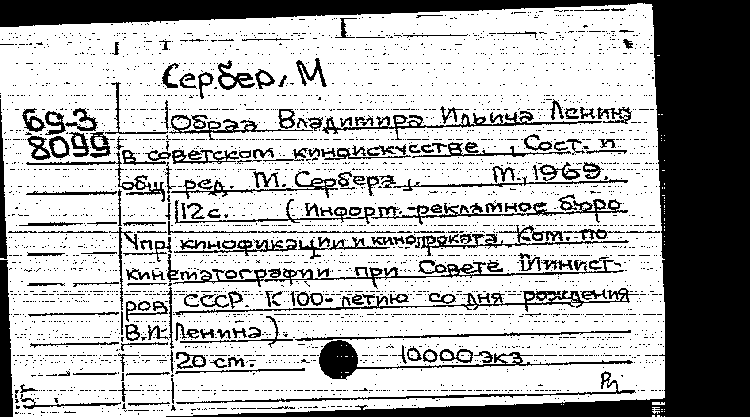 Сербер, М
69-3 Образ Владимира Ильича Ленина
8099 в советском киноискусстве. , Сост. и
общ ред. М. Сербера ,. М., 1969.
112 с. ( Информ.-рекламное бюро
Упр кинофикации и кинопроката. Ком. по
кинематографии при Совете Минист-
ров СССР. К 100-летию со дня рождения
В.И. Ленина ).
20 см. 10000 экз